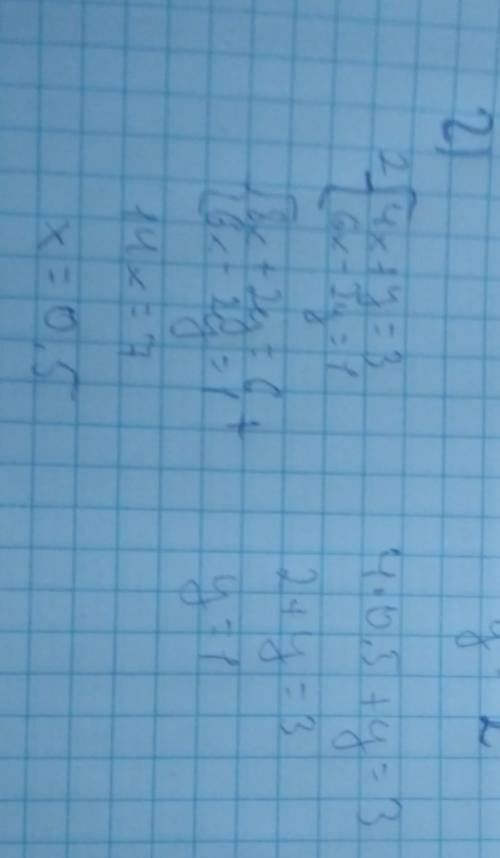 2)
2 { 4x + y = 3
{ 6x - 2y = 1
{ 8x + 2y = 6 +
{ 6x - 2y = 1
14x = 7
x = 0,5
4·0,5 + y = 3
2 + y = 3
y = 1
y 2